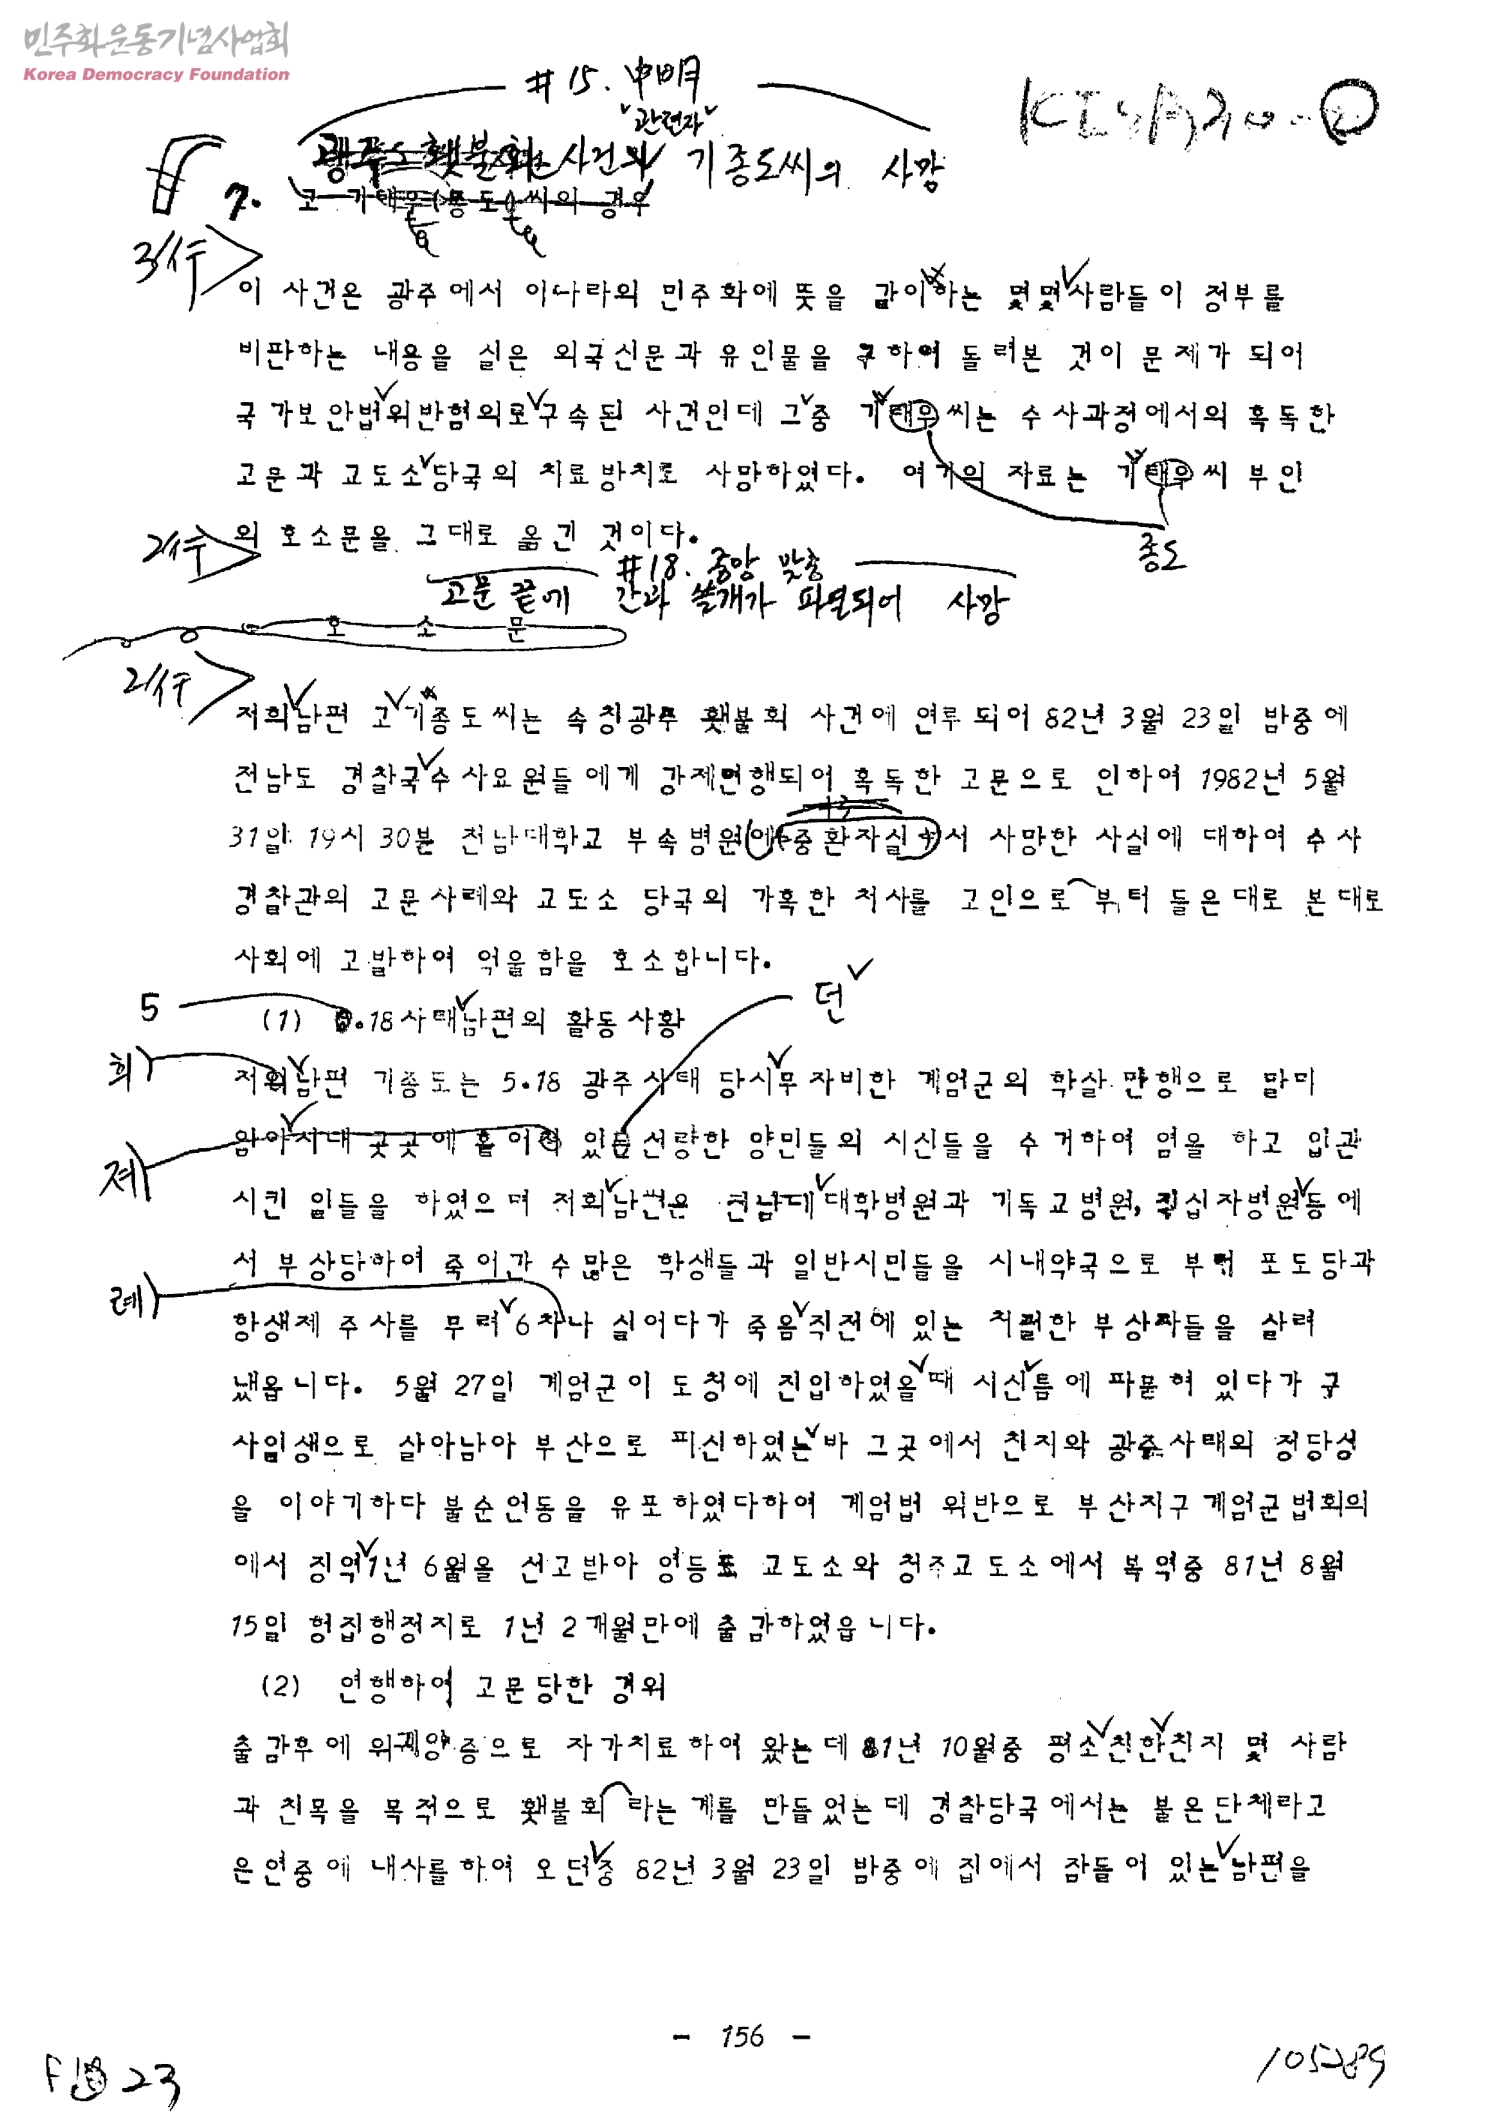 민주화운동기념사업회
Korea Democracy Foundation
#15. 中明
관련자
광주 횃불회 사건과 기종도씨의 사망
7. 고 기태우(종도)씨의 경우
3行
이 사건은 광주에서 이나라의 민주화에 뜻을 같이하는 몇몇사람들이 정부를
비판하는 내용을 실은 외국신문과 유인물을 구하여 돌려본 것이 문제가 되어
국가보안법위반혐의로구속된 사건인데 그중 기태우씨는 수사과정에서의 혹독한
고문과 교도소당국의 치료방치로 사망하였다. 여기의 자료는 기태우씨 부인
의 호소문을 그대로 옮긴 것이다.
종도
2行
#18. 중앙 맞춤
고문 끝에 간과 쓸개가 파열되어 사망
호 소 문
2行
저희남편 고기종도씨는 속칭광주 횃불회 사건에 연루되어 82년 3월 23일 밤중에
전남도 경찰국수사요원들에게 강제연행되어 혹독한 고문으로 인하여 1982년 5월
31일 19시 30분 전남대학교 부속병원에(중환자실)서 사망한 사실에 대하여 수사
경찰관의 고문사례와 교도소 당국의 가혹한 처사를 고인으로 부터 들은대로 본대로
사회에 고발하여 억울함을 호소합니다.
5
던
(1) 5.18사태남편의 활동사황
희
저희남편 기종도는 5.18 광주사태 당시무자비한 계엄군의 학살 만행으로 말미
암아시대 곳곳에 흩어져 있든선량한 양민들의 시신들을 수거하여 염을 하고 입관
져
시킨 일들을 하였으며 저희남편은 전남대대학병원과 기독교병원, 적십자병원등에
서 부상당하여 죽어간 수많은 학생들과 일반시민들을 시내약국으로 부터 포도당과
례
항생제 주사를 무려6차나 실어다가 죽음직전에 있는 처절한 부상자들을 살려
냈읍니다. 5월 27일 계엄군이 도청에 진입하였을때 시신틈에 파묻혀 있다가 구
사일생으로 살아남아 부산으로 피신하였는바 그곳에서 친지와 광주사태의 정당성
을 이야기하다 불순언동을 유포하였다하여 계엄법 위반으로 부산지구계엄군법회의
에서 징역1년 6월을 선고받아 영등포 교도소와 청주교도소에서 복역중 81년 8월
15일 형집행정지로 1년 2개월만에 출감하였읍니다.
(2) 연행하여 고문당한 경위
출감후에 위궤양증으로 자가치료하여 왔는데 81년 10월중 평소친한친지 몇 사람
과 친목을 목적으로 횃불회 라는 계를 만들었는데 경찰당국에서는 불온단체라고
은연중에 내사를하여 오던중 82년 3월 23일 밤중에 집에서 잠들어 있는남편을
- 156 -
23
105289